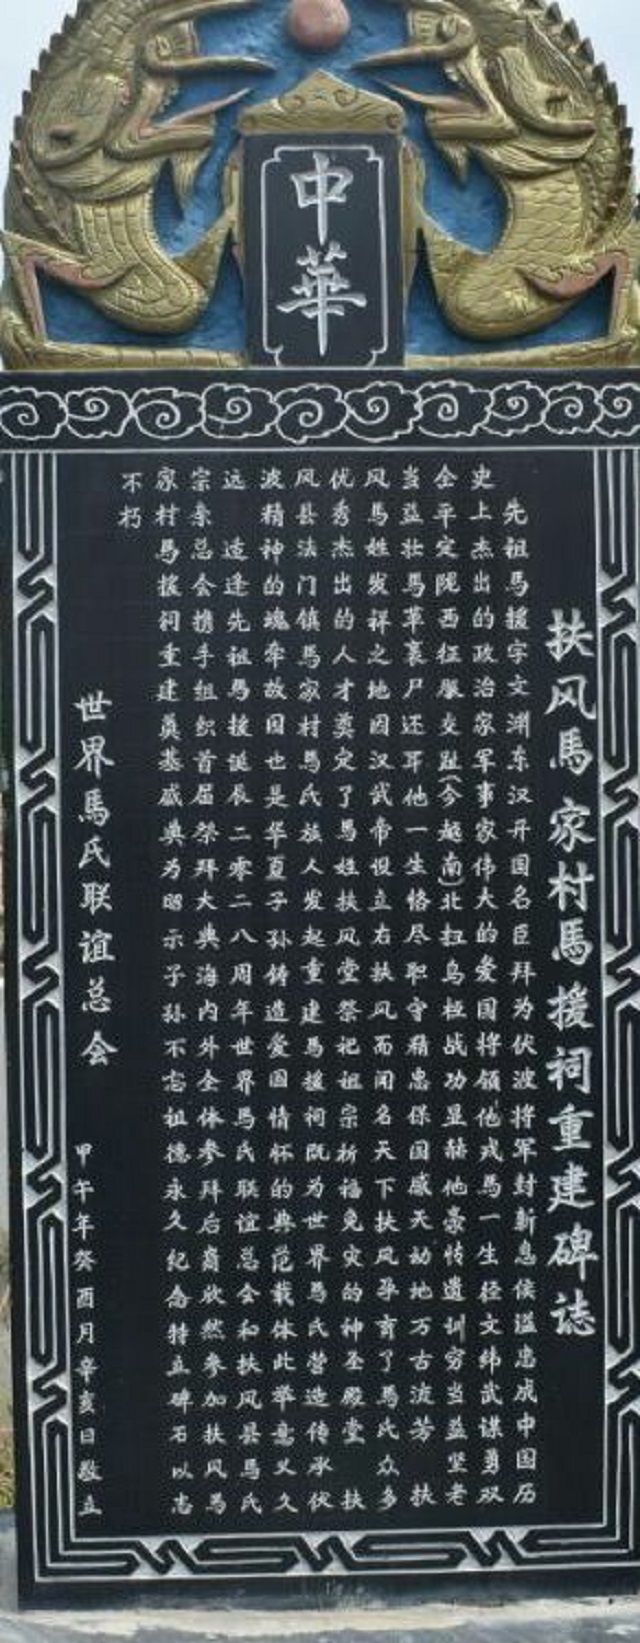 中華
扶风馬家村馬援祠重建碑誌
先祖馬援字文渊东汉开国名臣拜为伏波将军封新息侯谥忠成中国历
史上杰出的政治家军事家伟大的爱国将领他戎馬一生经文纬武谋勇双
全平定陇西征服交趾(今越南)北扫乌桓战功显赫他豪情遗训穷当益坚老
当益壮馬革裹尸还耳他一生恪尽职守精忠保国感天动地万古流芳 扶
风馬姓发祥之地因汉武帝设立右扶风而闻名天下扶风孕育了馬氏众多
优秀杰出的人才奠定了馬姓扶风堂祭祀祖宗祈福免灾的神圣殿堂 扶
风县法门镇馬家村馬氏族人发起重建馬援祠既为世界馬氏营造传承伏
波精神的魂牵故园也是华夏子孙铸造爱国情怀的典范载体此举意义久
远 适逢先祖馬援诞辰二零二八周年世界馬氏联谊总会和扶风县馬氏
宗亲总会携手组织首届祭拜大典海内外全体参拜后裔欣然参加扶风馬
家村馬援祠重建奠基盛典为昭示子孙不忘祖德永久纪念特立碑石以志
不朽
世界馬氏联谊总会
甲午年癸酉月辛亥日敬立